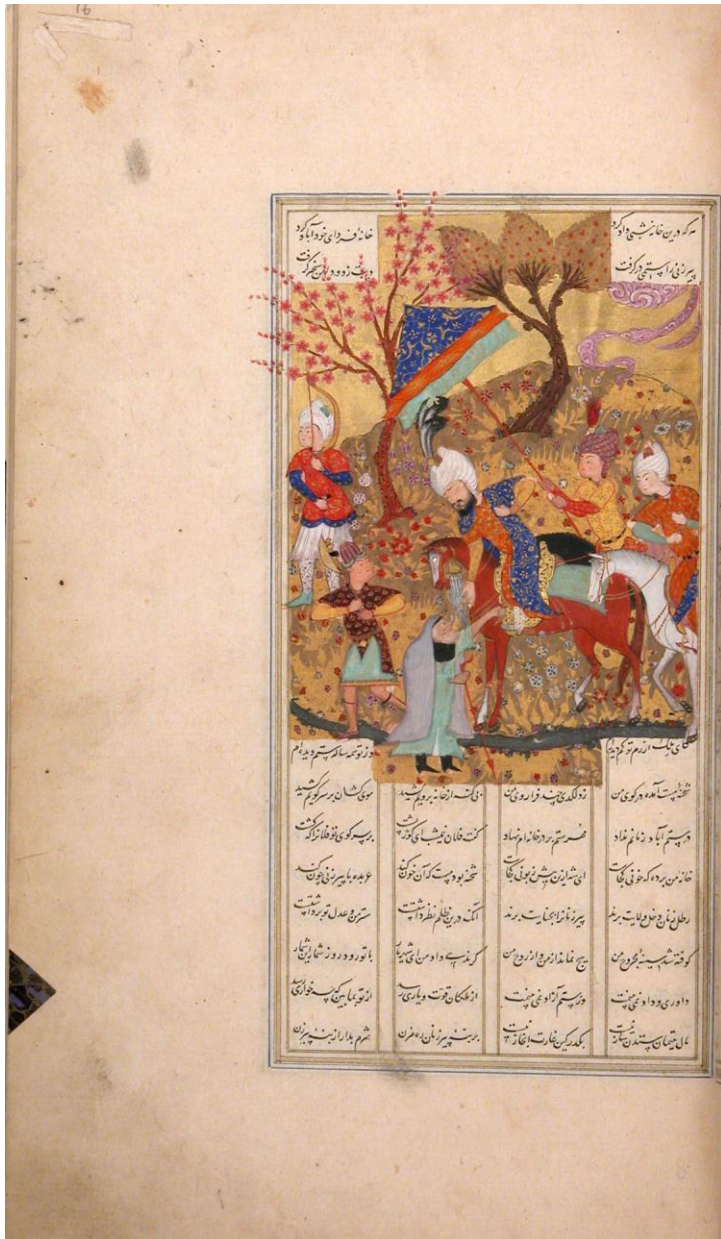 هر که درین خانه شبی داد کرد خانه فردای خود آباد کرد
پیرزنی را ستمی درگرفت دست زد و دامن سنجر گرفت
کای ملک آزرم تو کم دیده‌ام وز تو همه ساله ستم دیده‌ام
شحنه مست آمده در کوی من زد لگدی چند فرا روی من بی گنه از خانه برویم کشید موی کشان بر سر کویم کشید
در ستم آباد زمانم نداد مهر ستم بر در خانه ام نهاد گفت فلان نیمشب ای کوژپشت بر سر کوی تو فلانرا که کشت
خانه من برده که خونی کجاست ای شه ازین بیش زبونی کجاست شحنه بود مست که آن خون کند عربده با پیرزنی چون کند
رطل زنان دخل ولایت برند پیرزنانرا بجنایت برند آنک درین ظلم نظر داشتست ستر من و عدل تو برداشتست
کوفته شد سینه مجروح من هیچ نماند از من و از روح من گر ندهی داد من ای شهریار با تو رود روز شمار این شمار
داوری و داد نمی بینمت وز ستم آزاد نمی بینمت از ملکان قوت و یاری رسد از تو بما بین که چه خواری رسد
مال یتیمان ستدن ساز نیست بگذر کین غارت ابخاز نیست بر پنبه پیرزنان ره مزن شرم بدار از پنبه پیرزن